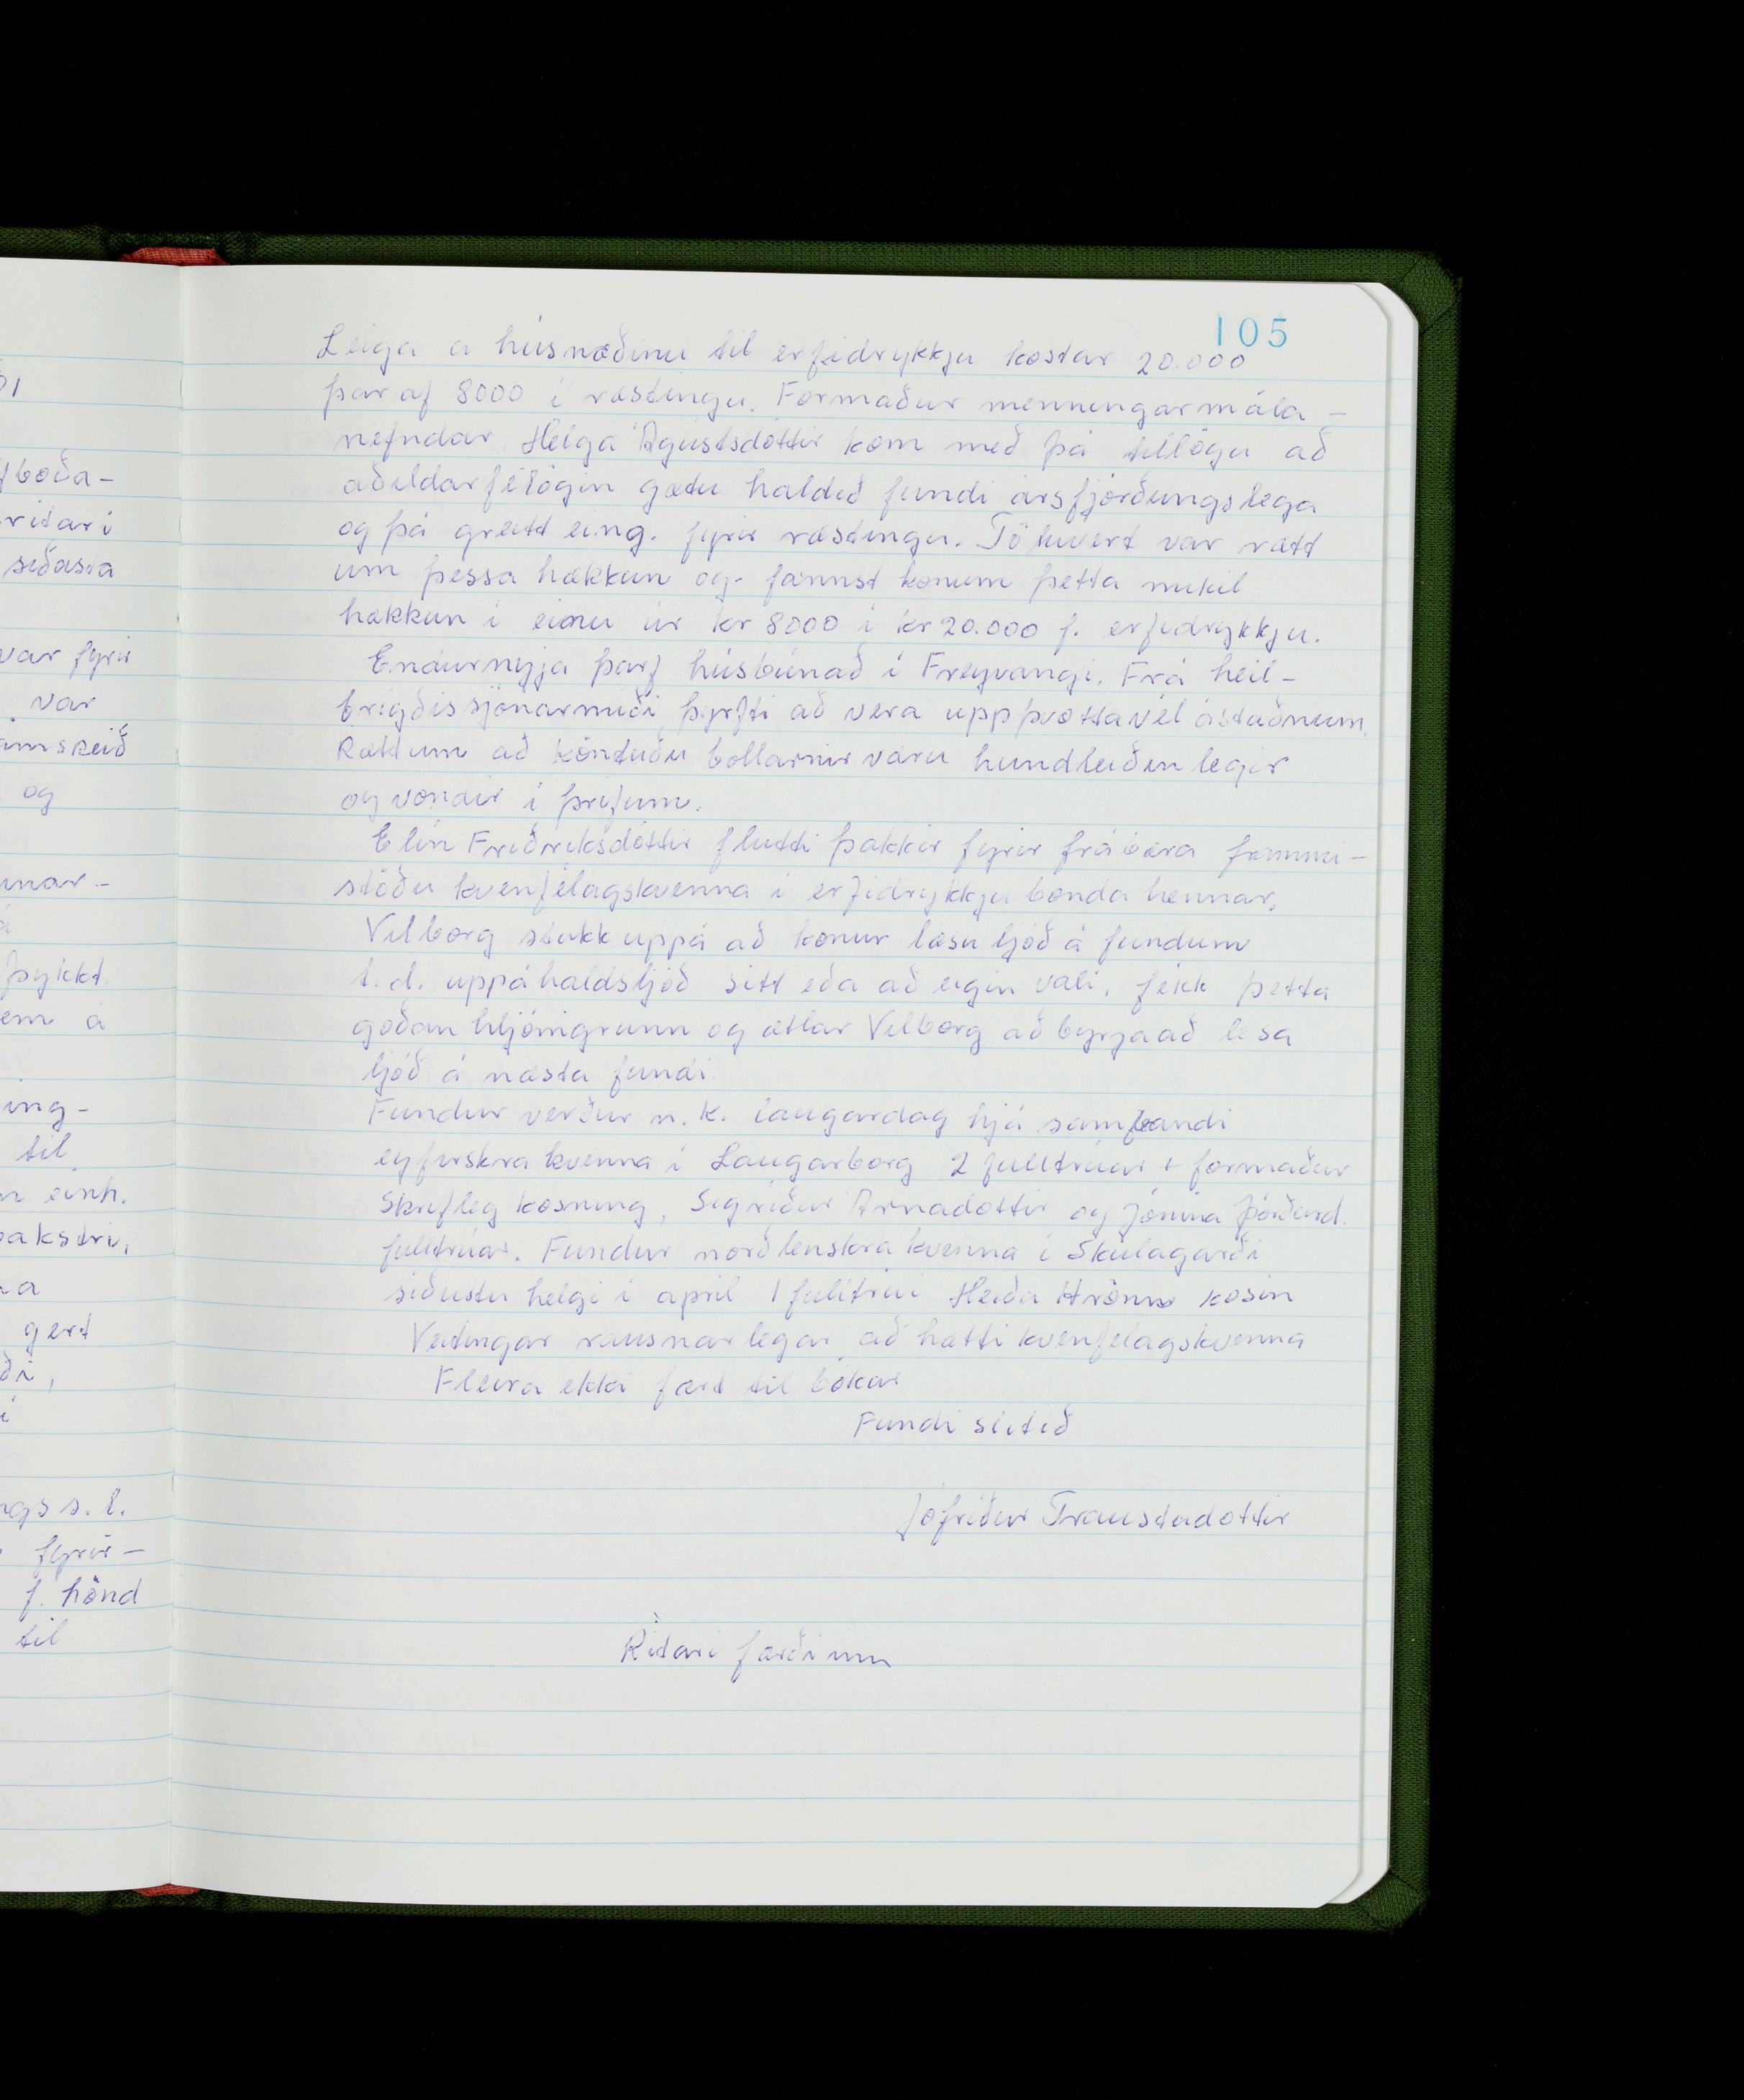 105
Leiga á húsnæðinu til erfidrykkju kostar 20.000
þar af 8000 í ræstingu. Formaður menningarmála-
nefndar Helga Ágústsdóttir kom með þá tillögu að
aðildarfélögin gætu haldið fundi ársfjórðungslega
og þá greitt eing. fyrir ræstingu. Töluvert var rætt
um þessa hækkun og fannst konum þetta mikil
hækkun í einu úr kr 8000 í kr 20.000 f. erfidrykkju.
Endurnyja þarf húsbúnað í Freyvangi. Frá heil-
brigðissjónarmiði þyrfti að vera uppþvottavél ástaðnum.
Rættum að köntuðu bollarnir væru hundleiðinlegir
og vondir í þrifum.
Elín Friðriksdóttir flutti þakkir fyrir frábæra frammi-
stöðu kvenfélagskvenna í erfidrykkju bónda hennar.
Vilborg stakk uppá að konur læsu ljóð á fundum
t.d. uppáhaldsljóð sitt eða að eigin vali, fékk þetta
góðan hljómgrunn og ætlar Vilborg að byrja að lesa
ljóð á næsta fundi.
Fundur verður n.k. laugardag hjá sambandi
eyfirskra kvenna í Laugarborg 2 fulltrúar + formaður
Skrifleg kosning, Sigríður Árnadóttir og Jónína Þórðard.
fulltrúar. Fundur norðlenskra kvenna í Skúlagarði
síðustu helgi í apríl 1 fulltrúi Heiða Hrönn kosin
Veitingar rausnarlegar að hætti kvenfélagskvenna
Fleira ekki fært til bókar
Fundi slitið
Jófríður Traustadóttir
Ritari færði inn
boða-
ritari
síðasta
var fyrir
var
amskeið
og
unar-
þykkt
em á
ing-
til
einh.
bakstri,
gert
ngs s.l.
fyrir-
f. hönd
til